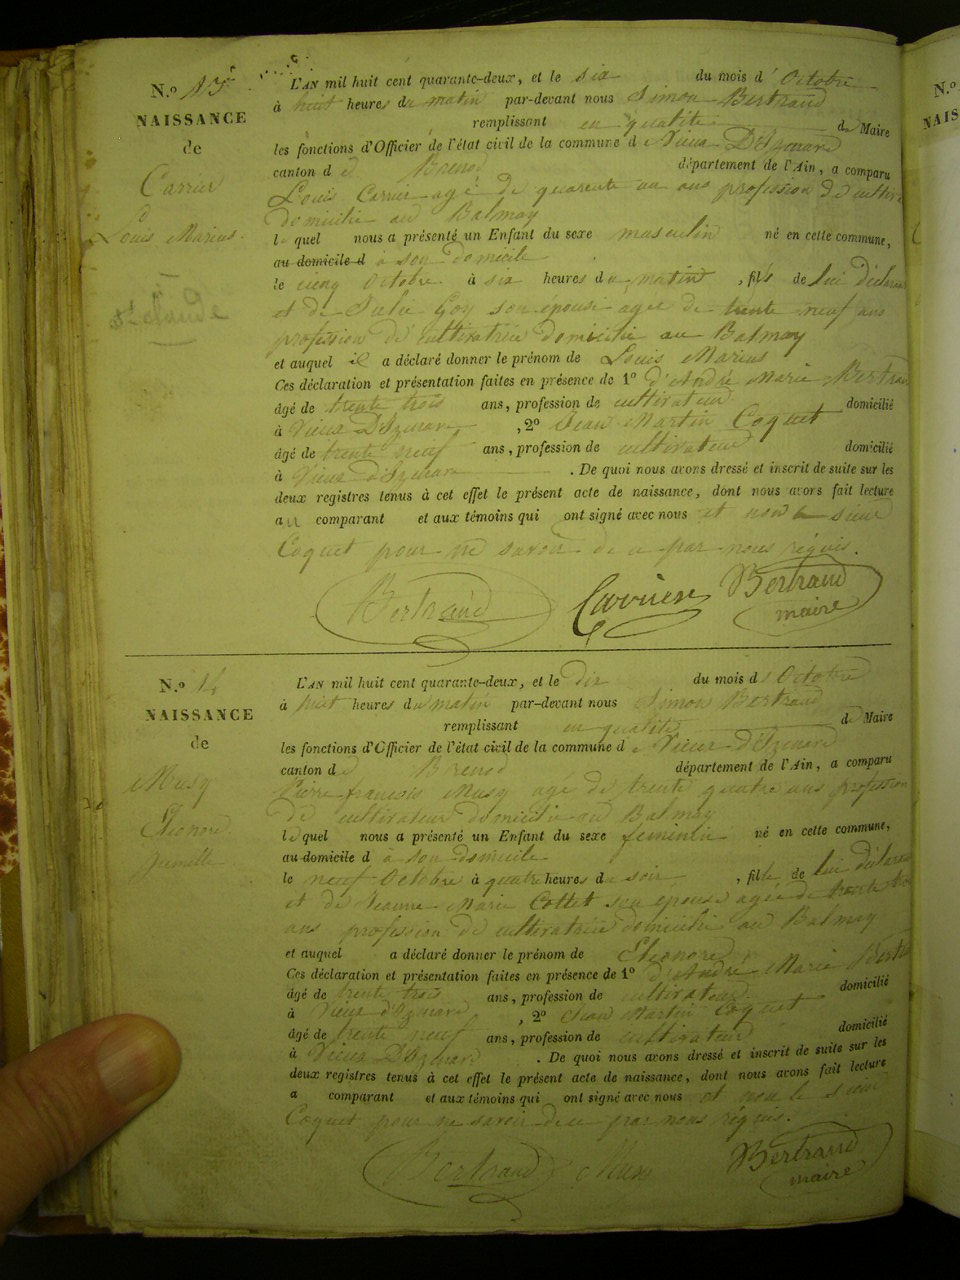 N.º 13
NAISSANCE
de
Carrier
Louis Marius.
St Claude
L'AN mil huit cent quarante-deux, et le six du mois d' Octobre
à huit heures du matin par-devant nous Simon Bertrand
remplissant en qualité de Maire
les fonctions d'Officier de l'état civil de la commune de Vieux D'Izenard
canton d e Brenod département de l'Ain, a comparu
Louis Carrier agé de quarente un ans profession de
domicilié au Balmay
lequel nous a présenté un Enfant du sexe masculin né en cette commune,
au domicile d à son domicile
le cinq Octobre à six heures du matin , fils de lui déclarant
et de Julie Goy son épouse agée de trente neuf ans
profession de cultivatrice domicilié au Balmay
et auquel il a déclaré donner le prénom de Louis Marius
Ces déclaration et présentation faites en présence de 1º d'André Marie Bertrand
âgé de trente trois ans, profession de cultivateur domicilié
à Vieux D'Izenard , 2º Jean Martin Coquet
âgé de trente neuf ans, profession de cultivateur domicilié
à Vieux d'Izenard . De quoi nous avons dressé et inscrit de suite sur les
deux registres tenus à cet effet le présent acte de naissance, dont nous avons fait lecture
au comparant et aux témoins qui ont signé avec nous et non le sieur
Coquet pour ne savoir de ce par nous réquis.
Bertrand Bertrand
maire
N.º 14
NAISSANCE
de
Musy
Eleonore
L'AN mil huit cent quarante-deux, et le dix du mois d Octobre
à huit heures du matin par-devant nous Simon Bertrand
remplissant en qualité de Maire
les fonctions d'Officier de l'état civil de la commune d e Vieux d'Izenard
canton d e Brenod département de l'Ain, a comparu
Pierre françois Musy agé de trente quatre ans profession
de cultivateur domicilié au Balmay
lequel nous a présenté un Enfant du sexe feminin né en cette commune,
au domicile d à son domicile
le neuf Octobre à quatre heures du soir , fille de lui déclarant
et de Jeanne Marie Collet son épouse agée de trente
ans profession de cultivatrice domicilié au Balmay
et auquel a déclaré donner le prénom de Eleonore
Ces déclaration et présentation faites en présence de 1º d'André Marie Bertrand
âgé de trente trois ans, profession de cultivateur domicilié
à Vieux d'Izenard , 2º Jean Martin Coquet
âgé de trente neuf ans, profession de cultivateur domicilié
à Vieux D'Izenard . De quoi nous avons dressé et inscrit de suite sur les
deux registres tenus à cet effet le présent acte de naissance, dont nous avons fait lecture
a comparant et aux témoins qui ont signé avec nous et non le sieur
Coquet pour ne savoir de ce par nous réquis.
Bertrand Bertrand
maire